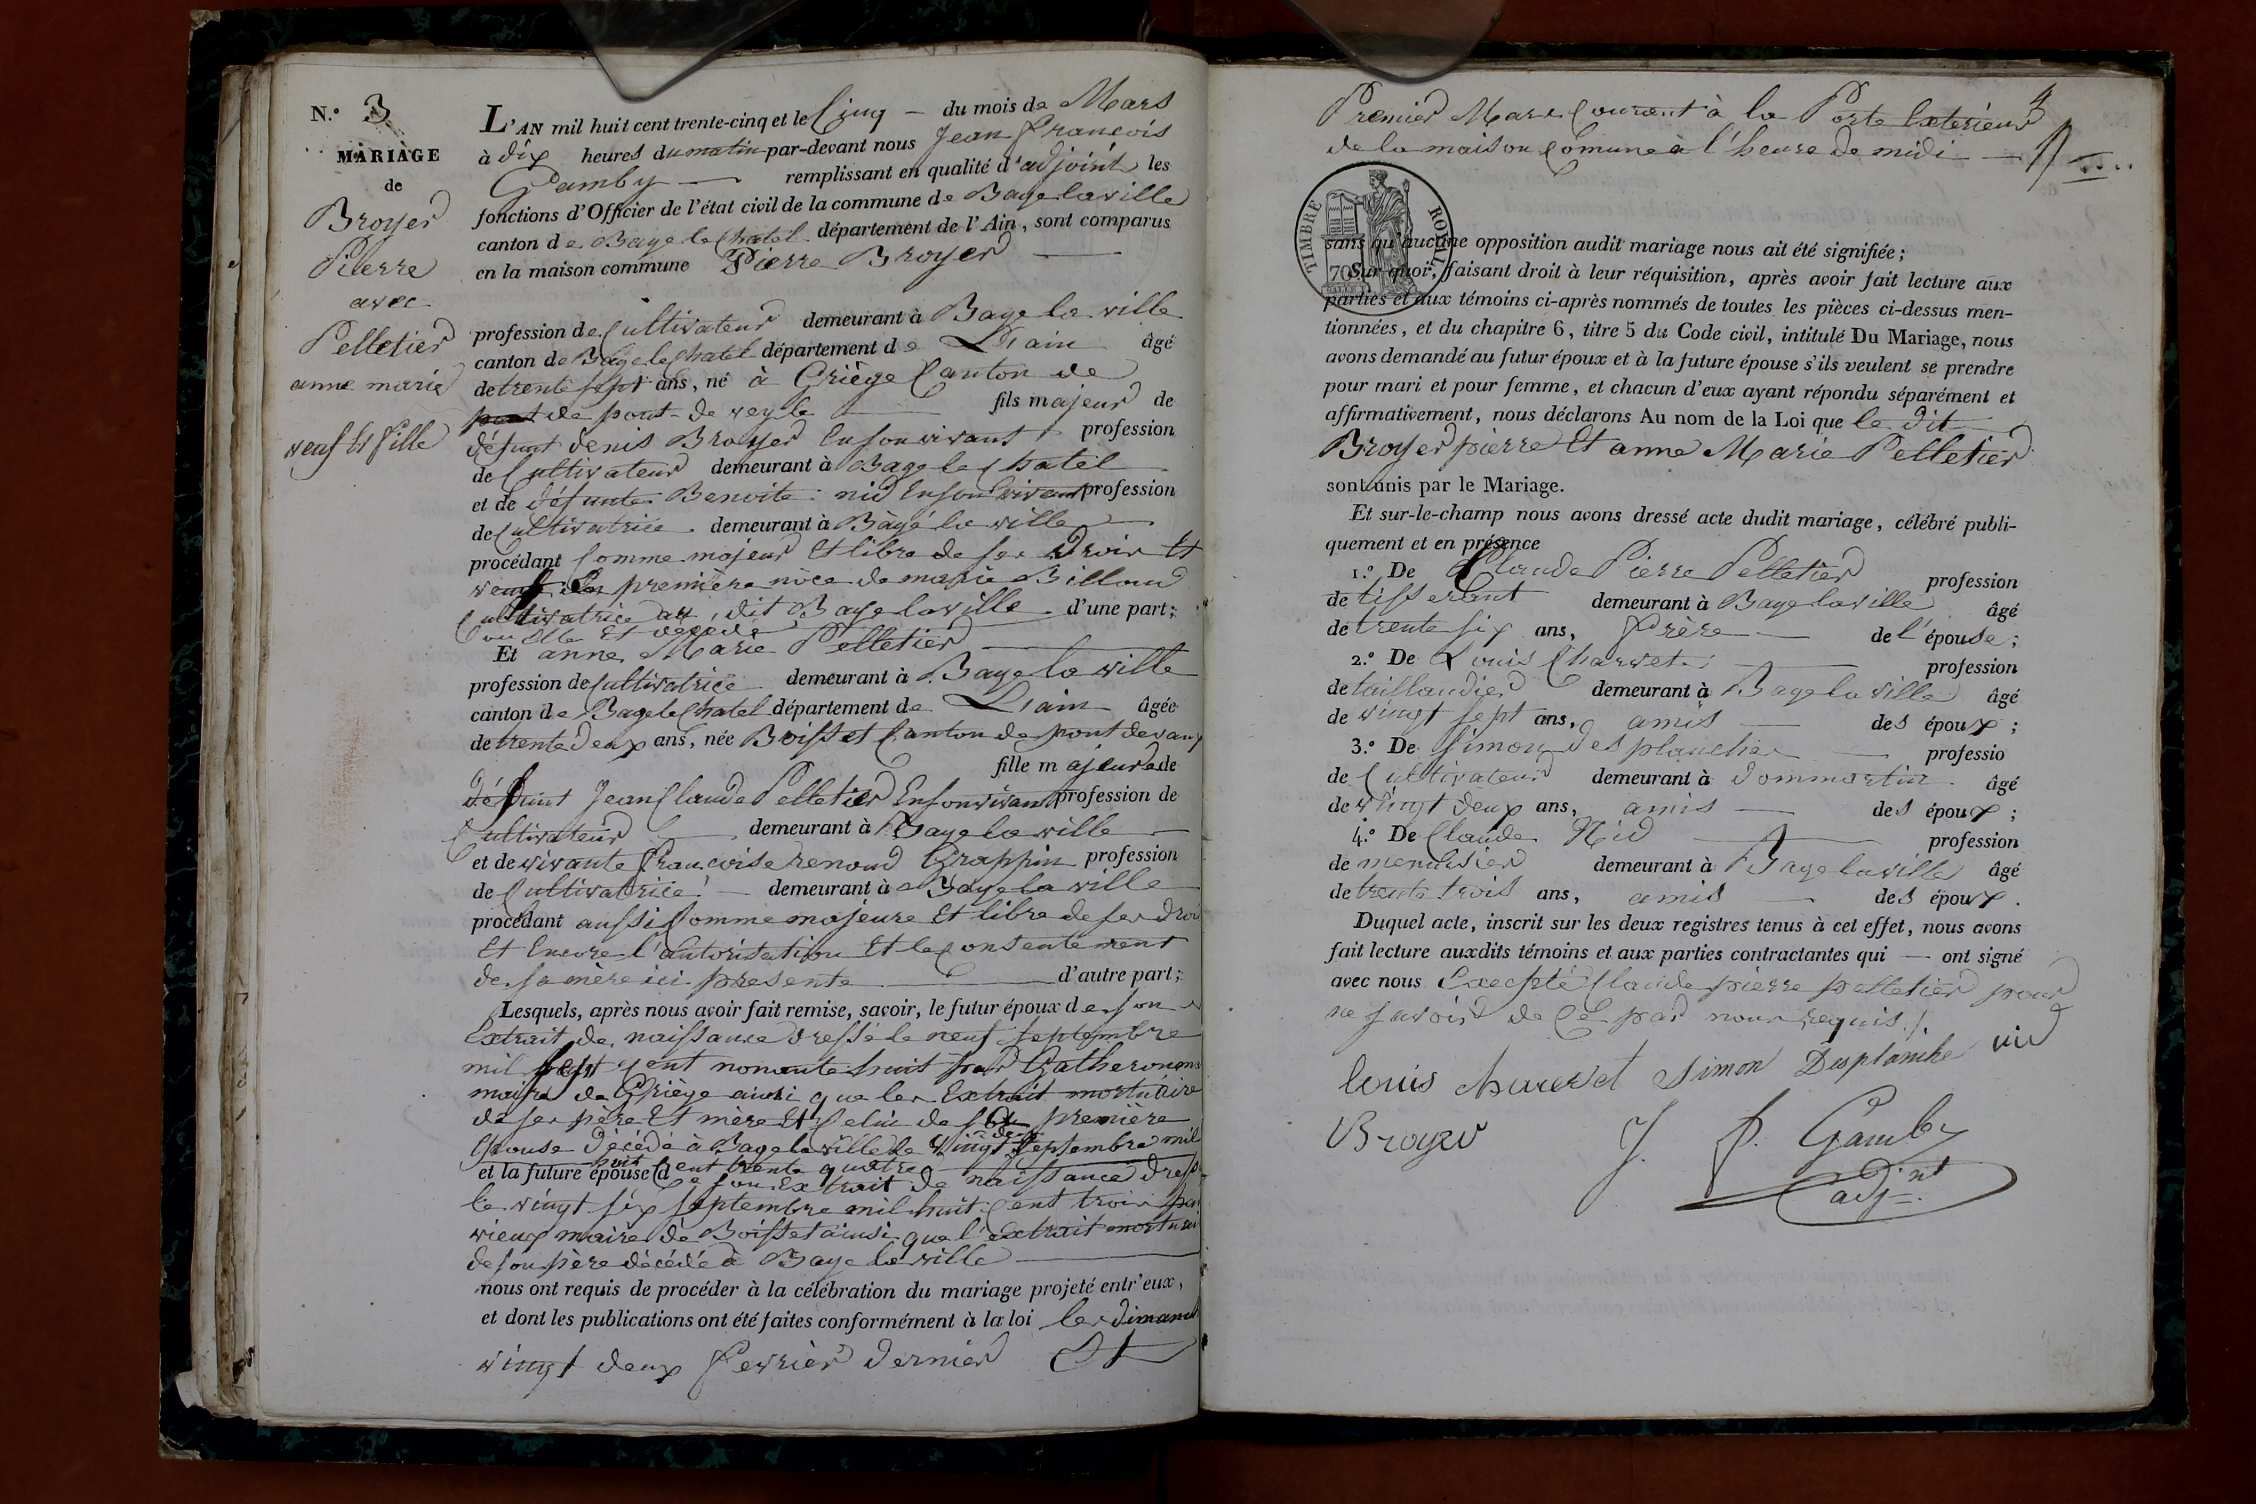 N.º 3
MARIAGE
de
Broyer
Pierre
avec
Pelletier
anne marie
veuf et fille
L'AN mil huit cent trente-cinq et le Cinq — du mois de Mars
à dix heures du matin par-devant nous Jean François
Gamby — remplissant en qualité d'adjoint les
fonctions d'Officier de l'état civil de la commune de Bage la ville
canton de Bage le Chatel département de l'Ain, sont comparus
en la maison commune Pierre Broyer —
profession de Cultivateur demeurant à Bage la ville
canton de Bage le Chatel département de Liain âgé
de trente sept ans, né à Griège Canton de
pont de veyle — fils majeur de
défunt denis Broyer En son vivant profession
de Cultivateur demeurant à Bage le Chatel
et de défunte Benoite nid En son vivant profession
de Cultivatrice demeurant à Bagé la ville —
procédant Comme majeur Et libre de ses Droir Et
veuf En première nôce de marie Billoud
Cultivatrice au dit Bage la ville d'une part;
ou Elle Et décédé
Et anne Marie Pelletier —
profession de Cultivatrice demeurant à Bage la ville
canton de Bage le Chatel département de Liain âgée
de trente deux ans, née Boisset Canton de pont de vaux
fille majeure de
défunt Jean Claude Pelletier En son vivant profession de
Cultivateur — demeurant à Bage la ville —
et de vivante Francoise renoud Grappin profession
de Cultivatrice — demeurant à Bage la ville
procédant aussi Comme majeure Et libre de ses droi
Et Encore l'autorisation Et le Consentement
de sa mère ici presente — d'autre part;
Lesquels, après nous avoir fait remise, savoir, le futur époux de son
Extrait de naissance dressé le neuf septembre
mil sept cent nonante huit par Catheronons
maire de Griège ainsi que les Extrait mortuaire
de ses père Et mère Et Celui de sa première
Epouse décédé à Bage la ville le vingt deux septembre mil
huit Cent trente quatre
et la future épouse de son Extrait de naissance dress
le vingt six septembre mil huit Cent trois par
vieux maire de Boisset ainsi que l'extrait mortuai
de son père décédé à Bage la ville —
nous ont requis de procéder à la célébration du mariage projeté entr'eux,
et dont les publications ont été faites conformément à la loi les dimanch
vingt deux Fevrier dernier Et
Premier Mars Courant à la Porte Exterieur
de la maison Comune à l'heure de midi —
TIMBRE ROYAL
70
sans qu'aucune opposition audit mariage nous ait été signifiée;
Sur quoi, faisant droit à leur réquisition, après avoir fait lecture aux
parties et aux témoins ci-après nommés de toutes les pièces ci-dessus men-
tionnées, et du chapitre 6, titre 5 du Code civil, intitulé Du Mariage, nous
avons demandé au futur époux et à la future épouse s'ils veulent se prendre
pour mari et pour femme, et chacun d'eux ayant répondu séparément et
affirmativement, nous déclarons Au nom de la Loi que le dit
Broyer pierre Et anne Marie Pelletier
sont unis par le Mariage.
Et sur-le-champ nous avons dressé acte dudit mariage, célébré publi-
quement et en présence
1.º De Claude Pierre Pelletier profession
de tisserant demeurant à Bage la ville âgé
de trente six ans, Frère — de l'épouse;
2.º De Louis Charvet — profession
de taillandier demeurant à Bage la ville âgé
de vingt sept ans, amis — des époux;
3.º De Simon Desplanche — professio
de Cultivateur demeurant à dommartin âgé
de vingt deux ans, amis — des époux;
4.º De Claude Nid — profession
de menuisier demeurant à Bage la ville âgé
de trente trois ans, amis — des époux.
Duquel acte, inscrit sur les deux registres tenus à cet effet, nous avons
fait lecture auxdits témoins et aux parties contractantes qui — ont signé
avec nous Excepté Claude pierre pelletier pour
ne savoir de Ce par nous requis
louis charvet Simon Desplanche nid
Broyer J. F. Gamby
adj.nt